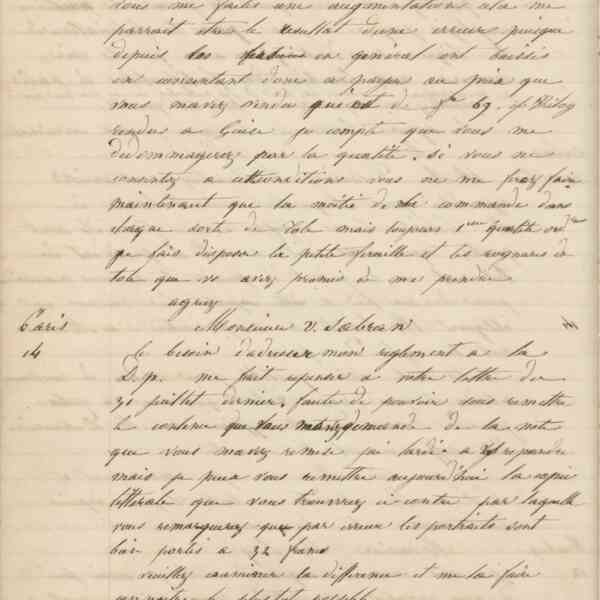 vous me faites une augmentation cela me
parrait etre le resultat d'une erreur puisque
depuis les en général ont baissés
en consentant donc a payer au prix que
vous m'avez vendu de 69
rendus a Guise je compte que vous me
dedommagerez par la quantité. si vous ne
consentez a conditions vous ne me ferez faire
maintenant que la moitié de commande dans
chaque sorte de Tole mais toujours 1ere qualité
je fais disposer la petite feraille et les rognures de
tole que vs avez promis de me prendre
agreez
Paris Monsieur V. Sabran
14 Le besoin d'adresser mon reglement a la
me fait repenser a votre lettre du
31 juillet dernier. faute de pouvoir vous remettre
le contenu demande de la note
que vous m'avez remise j'ai tardé a repondre
mais je peux vous remettre aujourd'hui la copie
littérale que vous trouverez ci contre par laquelle
vous remarquerez que par erreur les portraits sont
bien portés a 32 francs
veuillez examiner la difference et me la faire
connaitre le plus tot possible